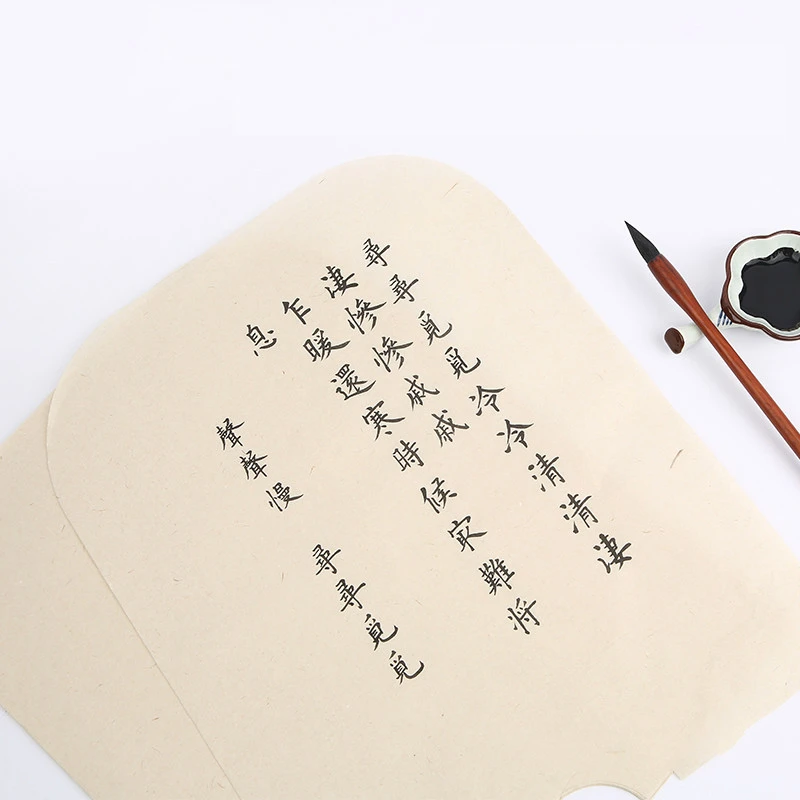 尋尋覓覓冷冷清清淒
淒慘慘戚戚
乍暖還寒時候㝡難将
息
聲聲慢 尋尋覓覓